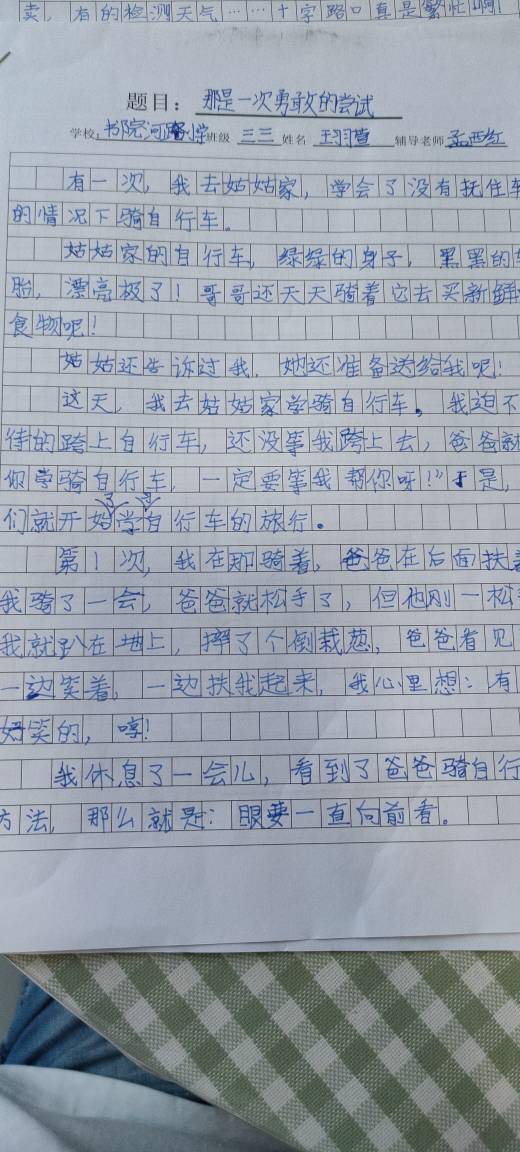 卖,有的检测天气……十字路口真是繁忙啊!
题目:那是一次勇敢的尝试
学校:书院河路小学 班级 三三 姓名 王羽萱 辅导老师 孟西红
有一次,我去姑姑家,学会了没有扶住车
的情况下骑自行车。
姑姑家的自行车,绿绿的身子,黑黑的
胎,漂亮极了!哥哥还天天骑着它去买新鲜
食物呢!
姑姑还告诉过我.她还准备送给我呢!
这天,我去姑姑家学骑自行车。我迫不
待的跨上自行车,还没等我跨上去,爸爸就
你学骑自行车,一定要等我帮你呀!”于是,
们就开始了学习自行车的旅行。
第1次,我在那骑着,爸爸在后面扶着
我骑了一会,爸爸就松手了,但他刚一松
我就趴在地上,摔了个倒栽葱,爸爸看见
一边笑着,一边扶我起来,我心里想:有
好笑的,哼!
我休息了一会儿,看到了爸爸骑自行
方法,那么就是:眼要一直向前看。